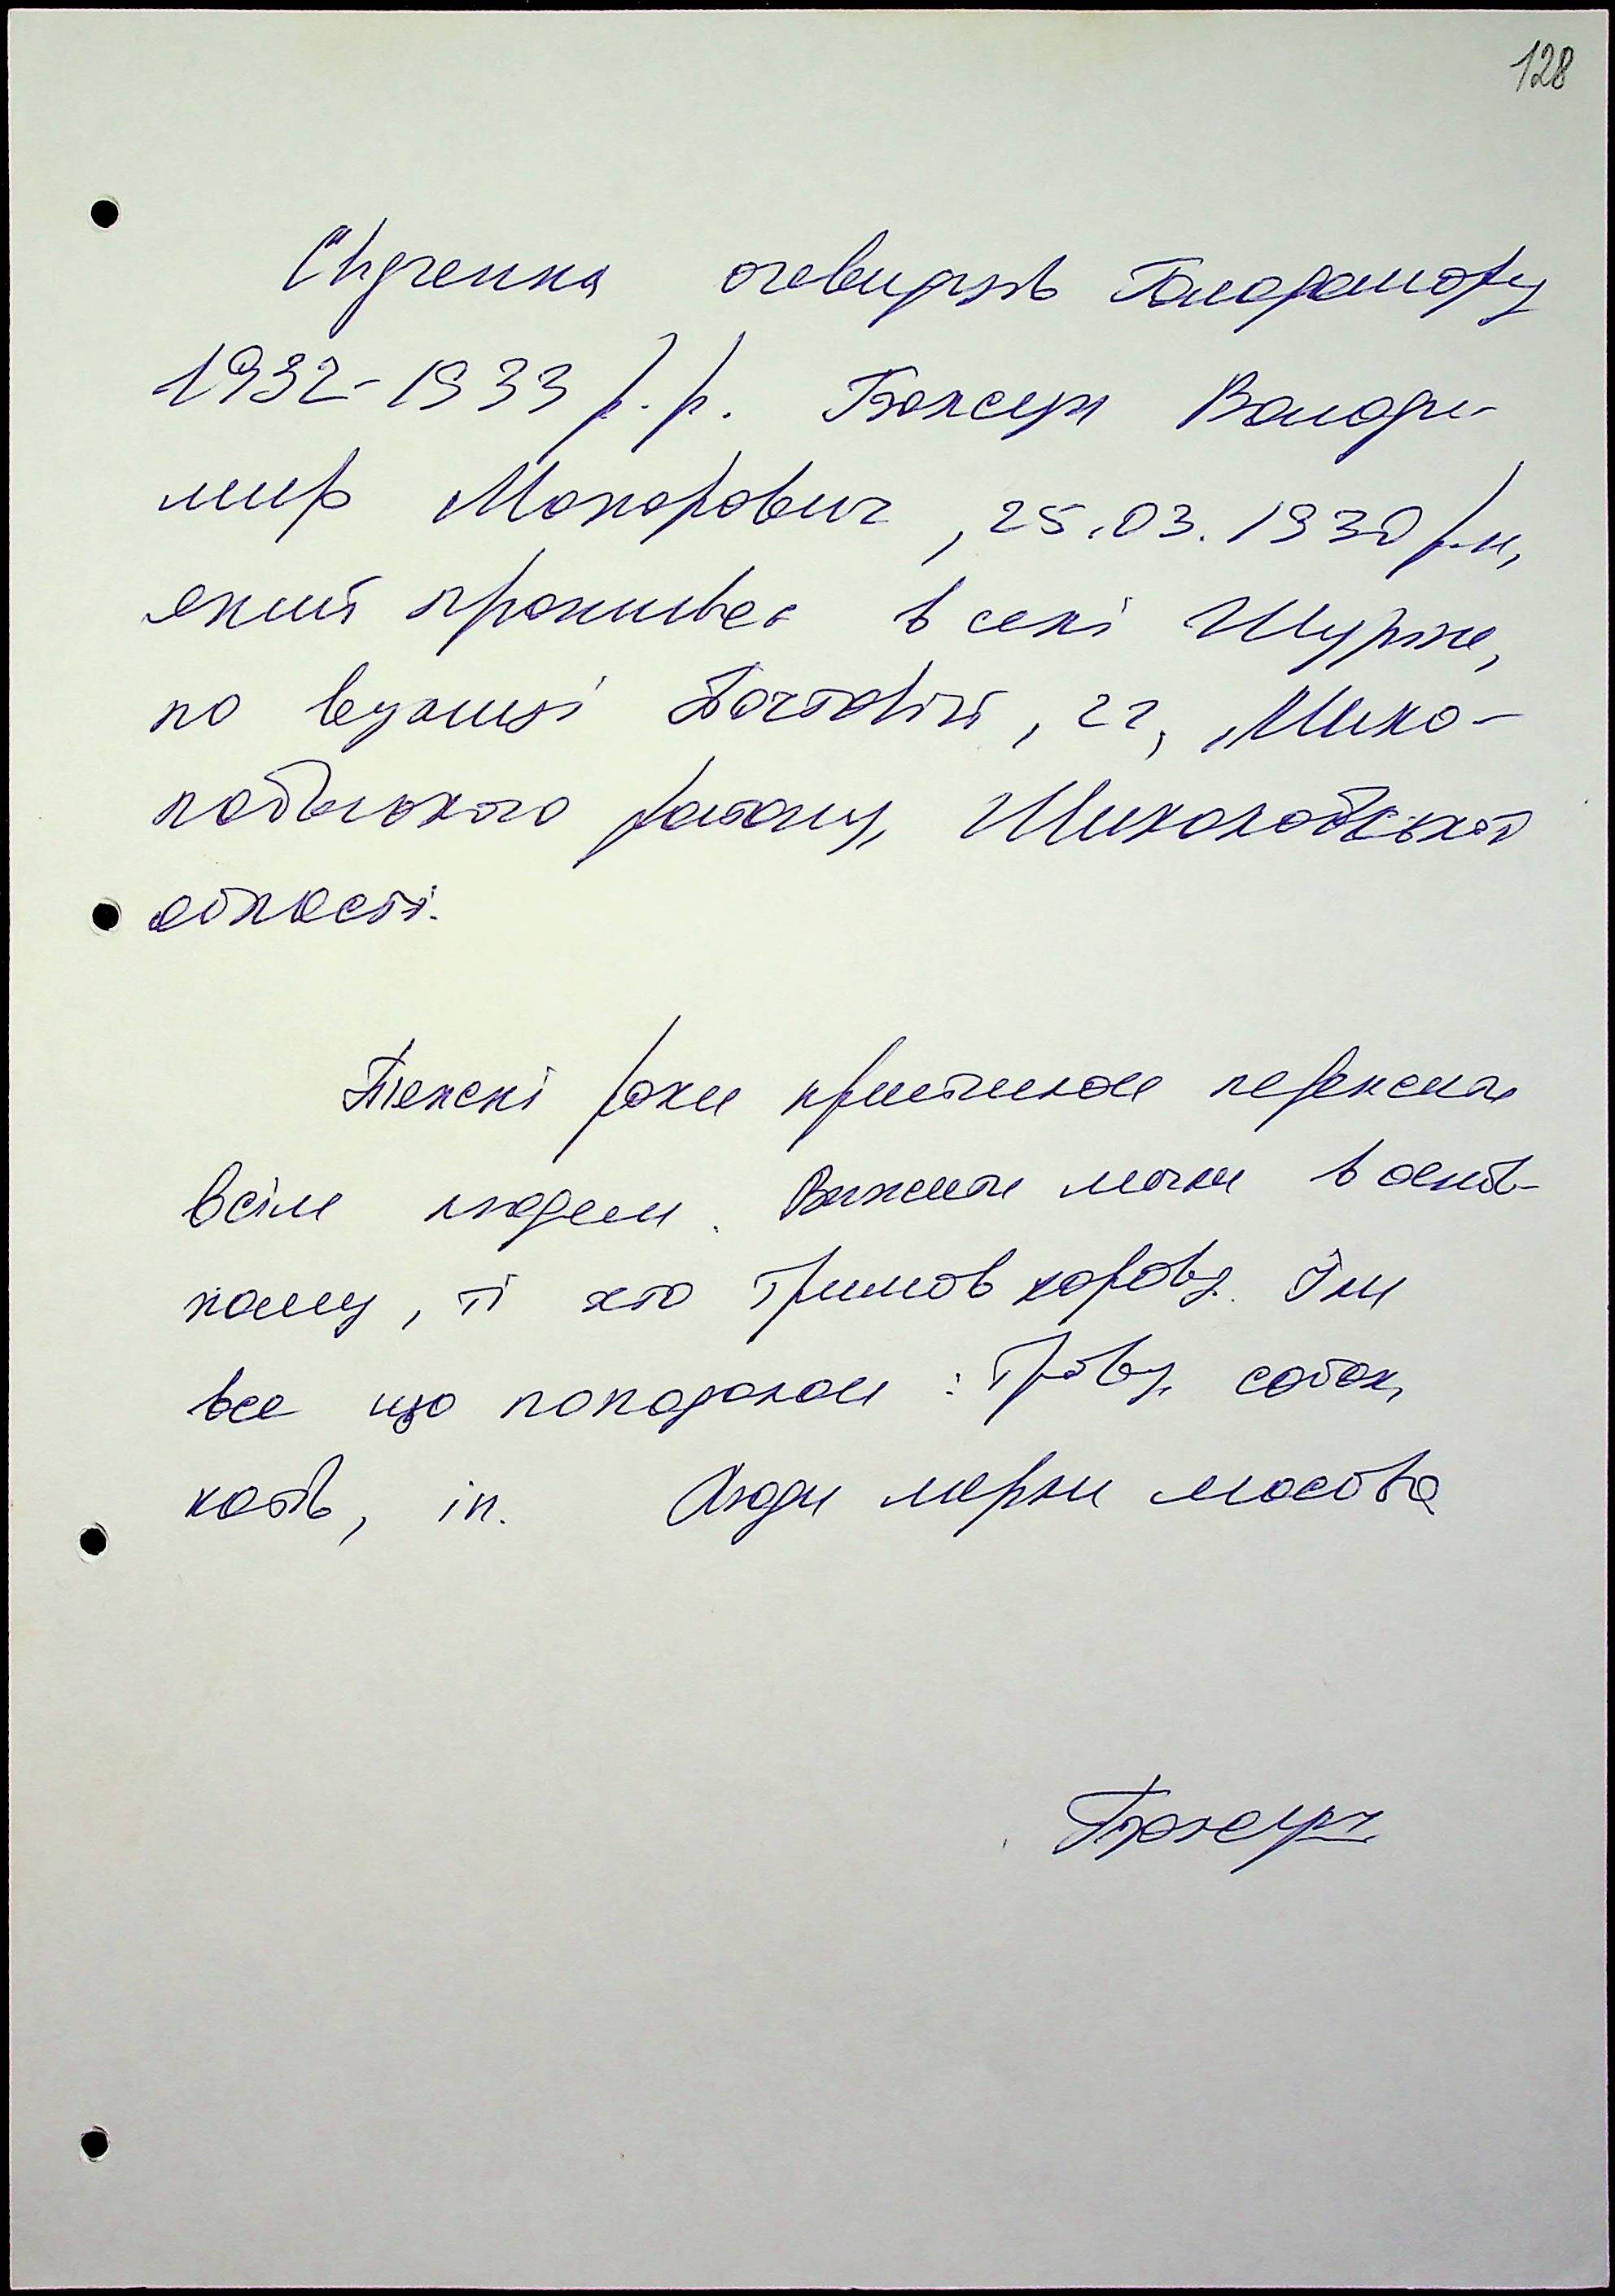 128
Свідчення очевидців Голодомору
1932-1933 р.р. Володи-
мир Макарович, 25.03.1930 р.н,
який проживає в селі
по вулиці , 22, Мико-
лаївського району, Миколаївської
області.
Тяжкі роки прийшлось пережити
всім людям. Вижити могли в основ-
ному, ті хто тримав корову. Їли
все що попадалось: траву, собак,
котів, ін. Люди мерли масово